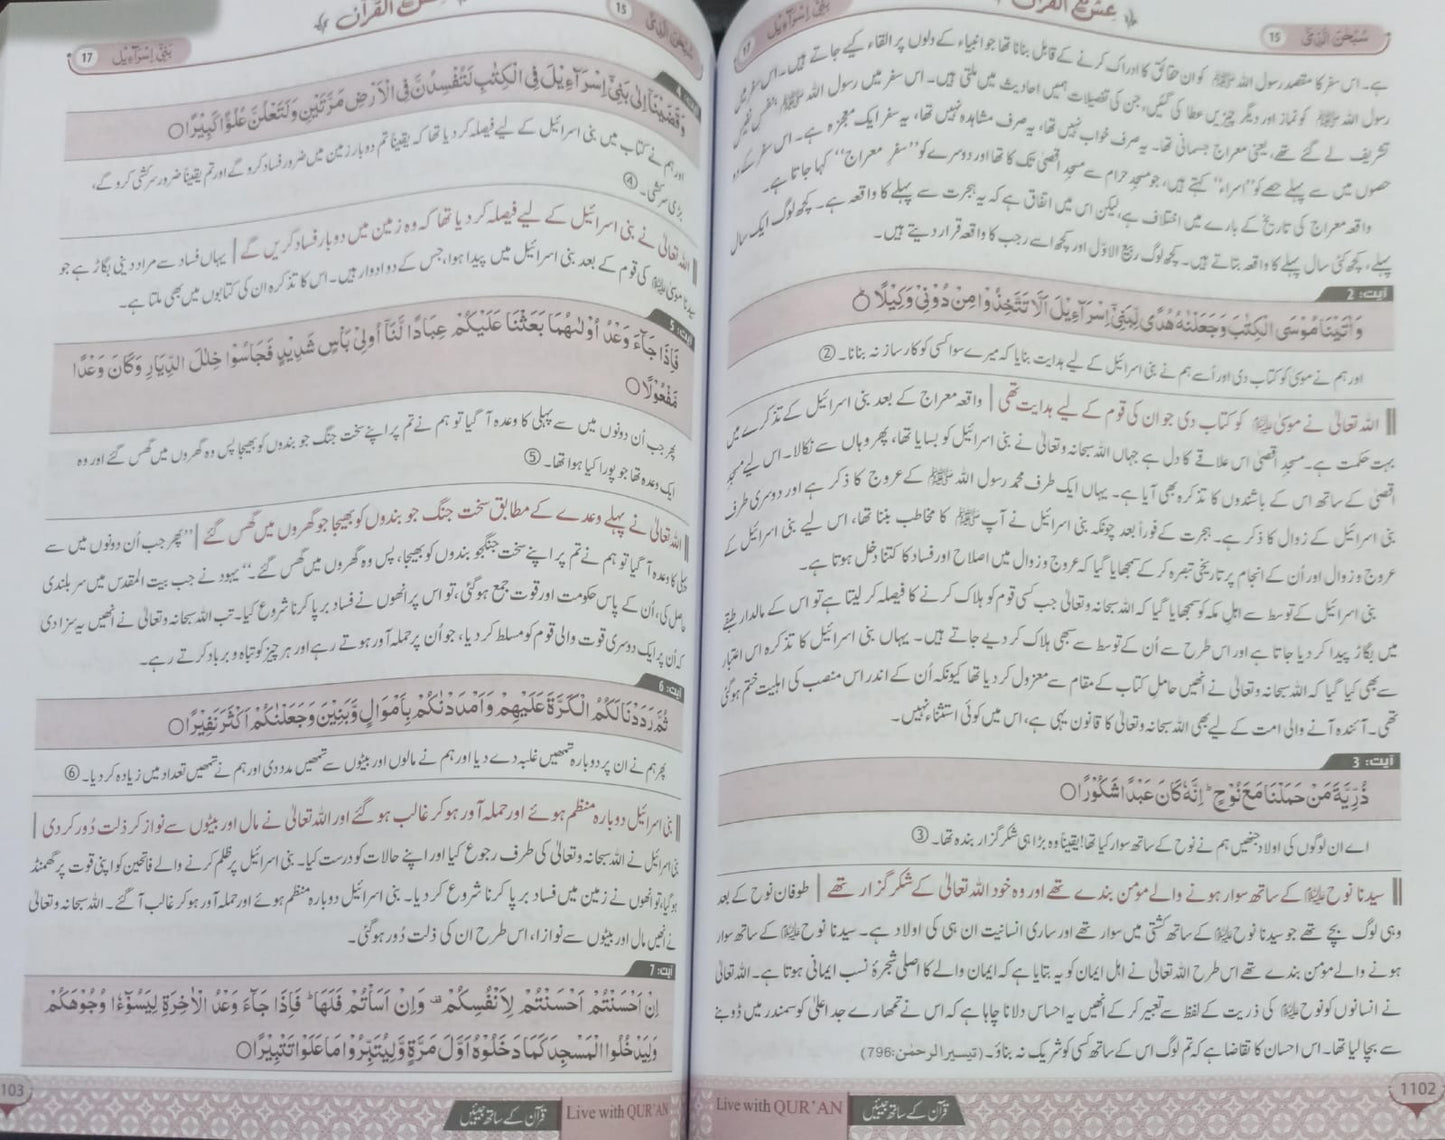 سُبْحٰنَ الَّذِیْ 15
بَنِیْٓ اِسْرَآءِیْل 17
ہے۔ اس سفر کا مقصد رسول اللہ ﷺ کو ان حقائق کا ادراک کرنے کے قابل بنانا تھا جو انبیاء کے دلوں پر القاء کیے جاتے ہیں۔ اس سفر میں
رسول اللہ ﷺ کو نماز اور دیگر چیزیں عطا کی گئیں، جن کی تفصیلات ہمیں احادیث میں ملتی ہیں۔ اس سفر میں رسول اللہ ﷺ بنفس نفیس
تشریف لے گئے تھے، یعنی معراج جسمانی تھا۔ یہ صرف خواب نہیں تھا، یہ صرف مشاہدہ نہیں تھا، یہ سفر ایک معجزہ ہے۔ اس سفر کے دو
حصوں میں سے پہلے حصے کو ’’اسراء‘‘ کہتے ہیں، جو مسجد حرام سے مسجد اقصیٰ تک کا تھا اور دوسرے کو ’’سفرِ معراج‘‘ کہا جاتا ہے۔
واقعہ معراج کی تاریخ کے بارے میں اختلاف ہے، لیکن اس میں اتفاق ہے کہ یہ ہجرت سے پہلے کا واقعہ ہے۔ کچھ لوگ ایک سال
پہلے، کچھ کئی سال پہلے کا واقعہ بتاتے ہیں۔ کچھ لوگ ربیع الاوّل اور کچھ اسے رجب کا واقعہ قرار دیتے ہیں۔
آیت: 2
وَاٰتَیْنَا مُوْسَی الْکِتٰبَ وَجَعَلْنٰہُ ھُدًی لِّبَنِیْٓ اِسْرَآءِیْلَ اَلَّا تَتَّخِذُوْا مِنْ دُوْنِیْ وَکِیْلًا ○
اور ہم نے موسیٰ کو کتاب دی اور اُسے ہم نے بنی اسرائیل کے لیے ہدایت بنایا کہ میرے سوا کسی کو کارساز نہ بنانا۔ ②
اللہ تعالیٰ نے موسیٰ علیہ السلام کو کتاب دی جو ان کی قوم کے لیے ہدایت تھی | واقعہ معراج کے بعد بنی اسرائیل کے تذکرے میں
بہت حکمت ہے۔ مسجدِ اقصیٰ اس علاقے کا دل ہے جہاں اللہ سبحانہ وتعالیٰ نے بنی اسرائیل کو بسایا تھا، پھر وہاں سے نکالا۔ اس لیے مسجدِ
اقصیٰ کے ساتھ اس کے باشندوں کا تذکرہ بھی آیا ہے۔ یہاں ایک طرف محمد رسول اللہ ﷺ کے عروج کا ذکر ہے اور دوسری طرف
بنی اسرائیل کے زوال کا ذکر ہے۔ ہجرت کے فوراً بعد چونکہ بنی اسرائیل نے آپ ﷺ کا مخاطب بننا تھا، اس لیے بنی اسرائیل کے
عروج وزوال اور اُن کے انجام پر تاریخی تبصرہ کر کے سمجھایا گیا کہ عروج وزوال میں اصلاح اور فساد کا کتنا دخل ہوتا ہے۔
بنی اسرائیل کے توسط سے اہلِ مکہ کو سمجھایا گیا کہ اللہ سبحانہ وتعالیٰ جب کسی قوم کو ہلاک کرنے کا فیصلہ کر لیتا ہے تو اس کے مالدار طبقے
میں بگاڑ پیدا کر دیا جاتا ہے اور اس طرح سے اُن کے توسط سے سبھی ہلاک کر دیے جاتے ہیں۔ یہاں بنی اسرائیل کا تذکرہ اس اعتبار
سے بھی کیا گیا کہ اللہ سبحانہ وتعالیٰ نے انھیں حاملِ کتاب کے مقام سے معزول کر دیا تھا کیونکہ اُن کے اندر اس منصب کی اہلیت ختم ہو گئی
تھی۔ آئندہ آنے والی امت کے لیے بھی اللہ سبحانہ وتعالیٰ کا قانون یہی ہے، اس میں کوئی استثناء نہیں۔
آیت: 3
ذُرِّیَّۃَ مَنْ حَمَلْنَا مَعَ نُوْحٍ ؕ اِنَّہٗ کَانَ عَبْدًا شَکُوْرًا ○
اے ان لوگوں کی اولاد جنھیں ہم نے نوح کے ساتھ سوار کیا تھا! یقیناً وہ بڑا ہی شکر گزار بندہ تھا۔ ③
سیدنا نوح علیہ السلام کے ساتھ سوار ہونے والے مؤمن بندے تھے اور وہ خود اللہ تعالیٰ کے شکر گزار تھے | طوفانِ نوح کے بعد
وہی لوگ بچے تھے جو سیدنا نوح علیہ السلام کے ساتھ کشتی میں سوار تھے اور ساری انسانیت ان ہی کی اولاد ہے۔ سیدنا نوح علیہ السلام کے ساتھ سوار
ہونے والے مؤمن بندے تھے اس طرح اللہ تعالیٰ نے اہلِ ایمان کو یہ بتایا ہے کہ ایمان والے کا اصلی شجرۂ نسب ایمانی ہوتا ہے۔ اللہ تعالیٰ
نے انسانوں کو نوح علیہ السلام کی ذریت کے لفظ سے تعبیر کر کے انھیں یہ احساس دلانا چاہا ہے کہ اس نے تمھارے جد اعلیٰ کو سمندر میں ڈوبنے
سے بچا لیا تھا۔ اس احسان کا تقاضا ہے کہ تم لوگ اس کے ساتھ کسی کو شریک نہ بناؤ۔ (تیسیر الرحمٰن: 796)
1102
قرآن کے ساتھ جیئیں
Live with QUR'AN
سُبْحٰنَ الَّذِیْ 15
بَنِیْٓ اِسْرَآءِیْل 17
وَقَضَیْنَآ اِلٰی بَنِیْٓ اِسْرَآءِیْلَ فِی الْکِتٰبِ لَتُفْسِدُنَّ فِی الْاَرْضِ مَرَّتَیْنِ وَلَتَعْلُنَّ عُلُوًّا کَبِیْرًا ○
اور ہم نے کتاب میں بنی اسرائیل کے لیے فیصلہ کر دیا تھا کہ یقیناً تم دوبار زمین میں ضرور فساد کرو گے اور تم یقیناً ضرور سرکشی کرو گے،
بڑی سرکشی۔ ④
اللہ تعالیٰ نے بنی اسرائیل کے لیے فیصلہ کر دیا تھا کہ وہ زمین میں دوبار فساد کریں گے | یہاں فساد سے مراد دینی بگاڑ ہے جو
سیدنا موسیٰ علیہ السلام کی قوم کے بعد بنی اسرائیل میں پیدا ہوا، جس کے دو ادوار ہیں۔ اس کا تذکرہ ان کی کتابوں میں بھی ملتا ہے۔
آیت: 5
فَاِذَا جَآءَ وَعْدُ اُوْلٰىہُمَا بَعَثْنَا عَلَیْکُمْ عِبَادًا لَّنَآ اُولِیْ بَاْسٍ شَدِیْدٍ فَجَاسُوْا خِلٰلَ الدِّیَارِ وَکَانَ وَعْدًا
مَّفْعُوْلًا ○
پھر جب اُن دونوں میں سے پہلی کا وعدہ آ گیا تو ہم نے تم پر اپنے سخت جنگ جو بندوں کو بھیجا پس وہ گھروں میں گھس گئے اور وہ
ایک وعدہ تھا جو پورا کیا ہوا تھا۔ ⑤
اللہ تعالیٰ نے پہلے وعدے کے مطابق سخت جنگ جو بندوں کو بھیجا جو گھروں میں گھس گئے | ’’پھر جب اُن دونوں میں سے
پہلی کا وعدہ آ گیا تو ہم نے تم پر اپنے سخت جنگجو بندوں کو بھیجا، پس وہ گھروں میں گھس گئے۔‘‘ یہود نے جب بیت المقدس میں سربلندی
حاصل کی، اُن کے پاس حکومت اور قوت جمع ہو گئی، تو اس پر انھوں نے فساد برپا کرنا شروع کیا۔ تب اللہ سبحانہ وتعالیٰ نے انھیں یہ سزا دی
کہ اُن پر ایک دوسری قوت والی قوم کو مسلط کر دیا، جو اُن پر حملہ آور ہوتے رہے اور ہر چیز کو تباہ و برباد کرتے رہے۔
آیت: 6
ثُمَّ رَدَدْنَا لَکُمُ الْکَرَّۃَ عَلَیْہِمْ وَاَمْدَدْنٰکُمْ بِاَمْوَالٍ وَّبَنِیْنَ وَجَعَلْنٰکُمْ اَکْثَرَ نَفِیْرًا ○
پھر ہم نے ان پر دوبارہ تمھیں غلبہ دے دیا اور ہم نے مالوں اور بیٹوں سے تمھیں مدد دی اور ہم نے تمھیں تعداد میں زیادہ کر دیا۔ ⑥
بنی اسرائیل دوبارہ منظم ہوئے اور حملہ آور ہو کر غالب ہو گئے اور اللہ تعالیٰ نے مال اور بیٹوں سے نواز کر ذلت دُور کر دی |
بنی اسرائیل نے اللہ سبحانہ وتعالیٰ کی طرف رجوع کیا اور اپنے حالات کو درست کیا۔ بنی اسرائیل پر ظلم کرنے والے فاتحین کو اپنی قوت پر گھمنڈ
ہو گیا، تو انھوں نے زمین میں فساد برپا کرنا شروع کر دیا۔ بنی اسرائیل دوبارہ منظم ہوئے اور حملہ آور ہو کر غالب آ گئے۔ اللہ سبحانہ وتعالیٰ
نے انھیں مال اور بیٹوں سے نوازا، اس طرح ان کی ذلت دُور ہو گئی۔
آیت: 7
اِنْ اَحْسَنْتُمْ اَحْسَنْتُمْ لِاَنْفُسِکُمْ ۟ وَاِنْ اَسَاْتُمْ فَلَہَا ؕ فَاِذَا جَآءَ وَعْدُ الْاٰخِرَۃِ لِیَسُوْٓءٗا وُجُوْھَکُمْ
وَلِیَدْخُلُوا الْمَسْجِدَ کَمَا دَخَلُوْہُ اَوَّلَ مَرَّۃٍ وَّلِیُتَبِّرُوْا مَا عَلَوْا تَتْبِیْرًا ○
103
قرآن کے ساتھ جیئیں
Live with QUR'AN